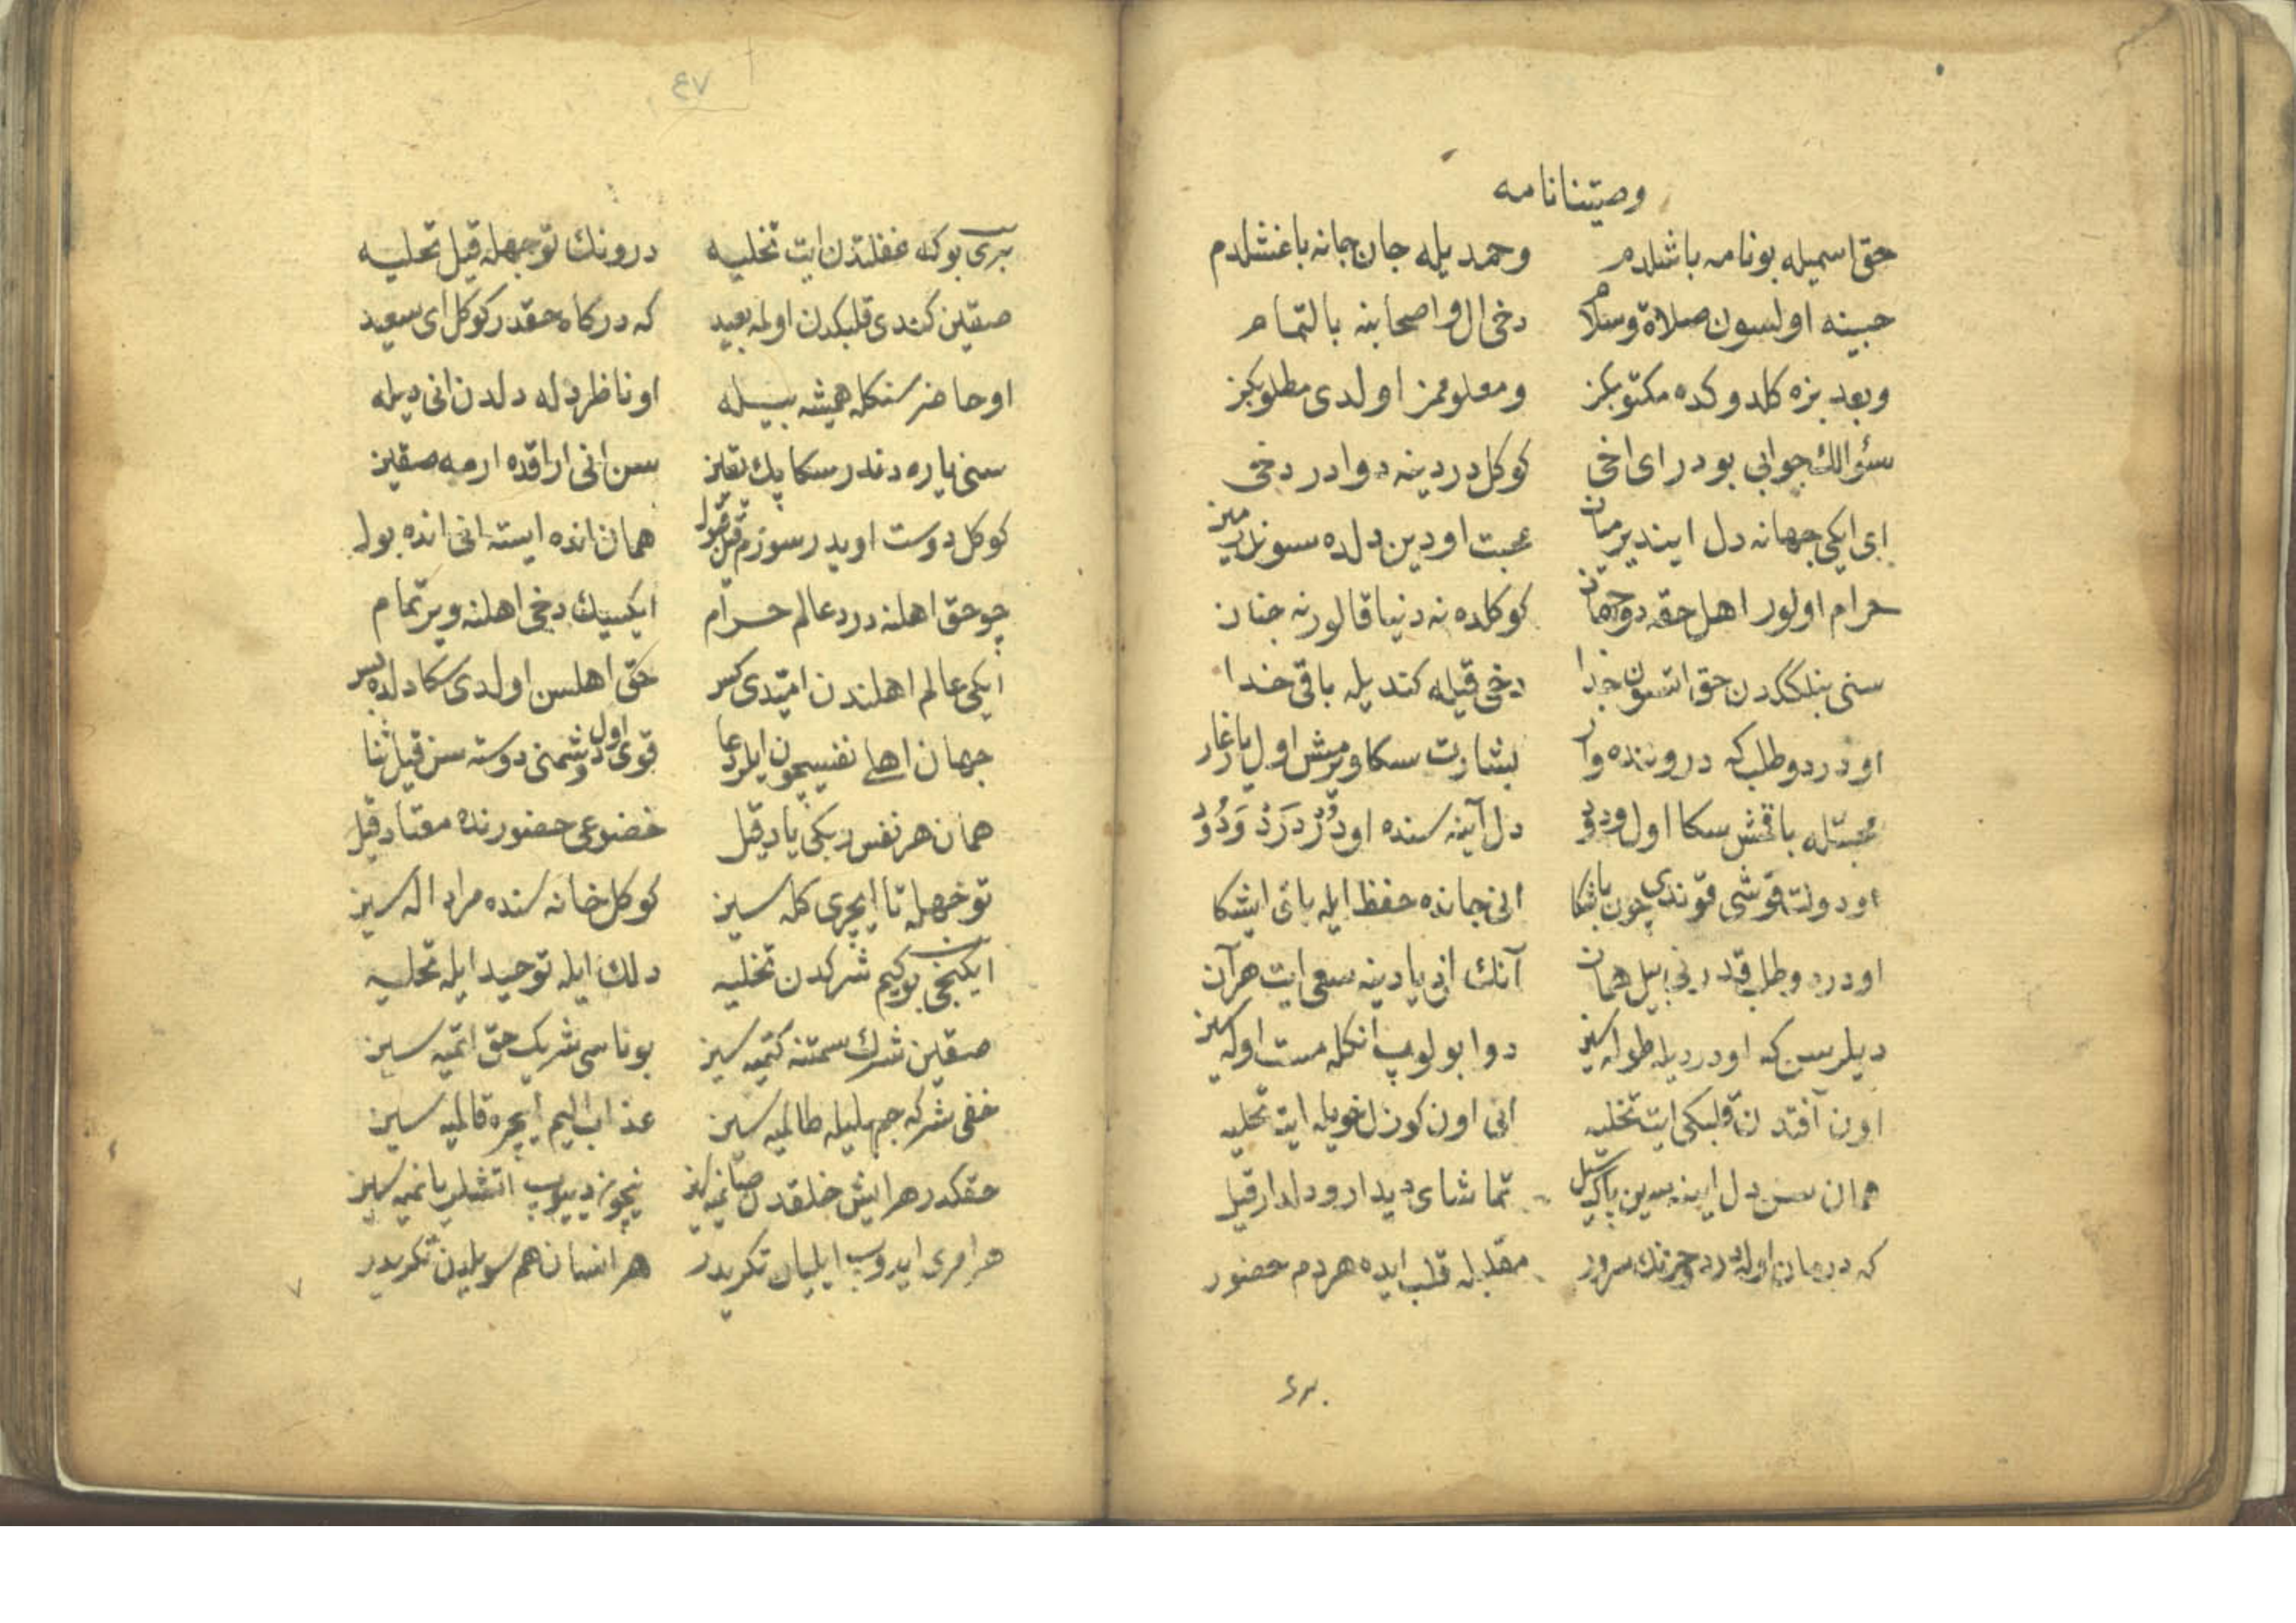 وصیتنانامه
حق اسمیله بونامه باشلدم وحمد یله جان جانه باغشلدم
حبینه اولسون صلاة وسلام دخی ال واصحابنه بالتمام
وبعد بزه کلدوکده مکتوبکز ومعلوممز اولدی مطلوبکز
سؤالك جوابی بودر ای اخی کوکل دردینه دوادر دخی
ای ایکی جهانه دل ایندیرمیان محبت اودین دلده
حرام اولور اهل حقه دوجهان کوکلده نه دنیا قالور نه جنان
سنی بنلککدن حق اتسون جدا دخی قیله کندیله باقی خدا
او درد وطلب که دروننده وار بشارت سکا ویرمش اول یار غار
محبتله باقمش سکا اول ودود دل آینه سنده او
او دولت قوشی قوندی چون باشکا انی جانده حفظ ایله باق ایشکا
او درد وطلب قدرنی بیل همان آنك انی یادینه سعی ایت هر آن
دیلرسن که او دردیله طوله سین دوا بولوب انکله مست اوله سین
اون آفتدن قلبکی ایت تخلیه انی اون کوزل خویله ایت تحلیه
همان سن دل اینه سین پاك سیل تماشای دیدار ودلدار قیل
که درمان اوله درد سرور مقلبله قلب ایده هر دم حضور
٤٣٠
٤٧
بری بوکه غفلتدن ایت تخلیه درونك توجهله قیل تحلیه
صقین کندی قلبکدن اولمه بعید که درکاه حقدر کوکل ای سعید
او حاضر سنکله همیشه بیله او ناظر دله دلدن انی دیله
سنی یاره دندر سکا پك یقین سن انی اراقده ارمه صقین
کوکل دوست اویدر سوزم قیل قبول همان انده ایسته انی انده بول
چو حق اهلنه درد عالم حرام ایکسیك دخی اهلنه ویر تمام
ایکی عالم اهلندن امیدی کس حق اهلسن اولدی سکا دلده بس
جهان اهلی نفسیچون ایلر دعا قوی اول دشمنی دوسته سن قیل ثنا
همان هر نفس ربکی یاد قیل خضوعی حضورنده معتاد قیل
توجهله تا ایچری کله سین کوکل خانه سنده مراد اله سین
ایکنجی بوکیم شرکدن تخلیه دلك ایله توحید ایله تحلیه
صقین شرك سمتنه کتمیه سین بوناسی شریك حق اتمیه سین
خفی شرکه جهلیله طالمیه سین عذاب الیم ایچره قالمیه سین
حقکدر هر ایش خلقدن صانمیه سین نیچون دییوب اتشلر یانمیه سین
هر امری ایدوب ایلیان تکریدر هر انسان هم سویلین تکریدر
٧